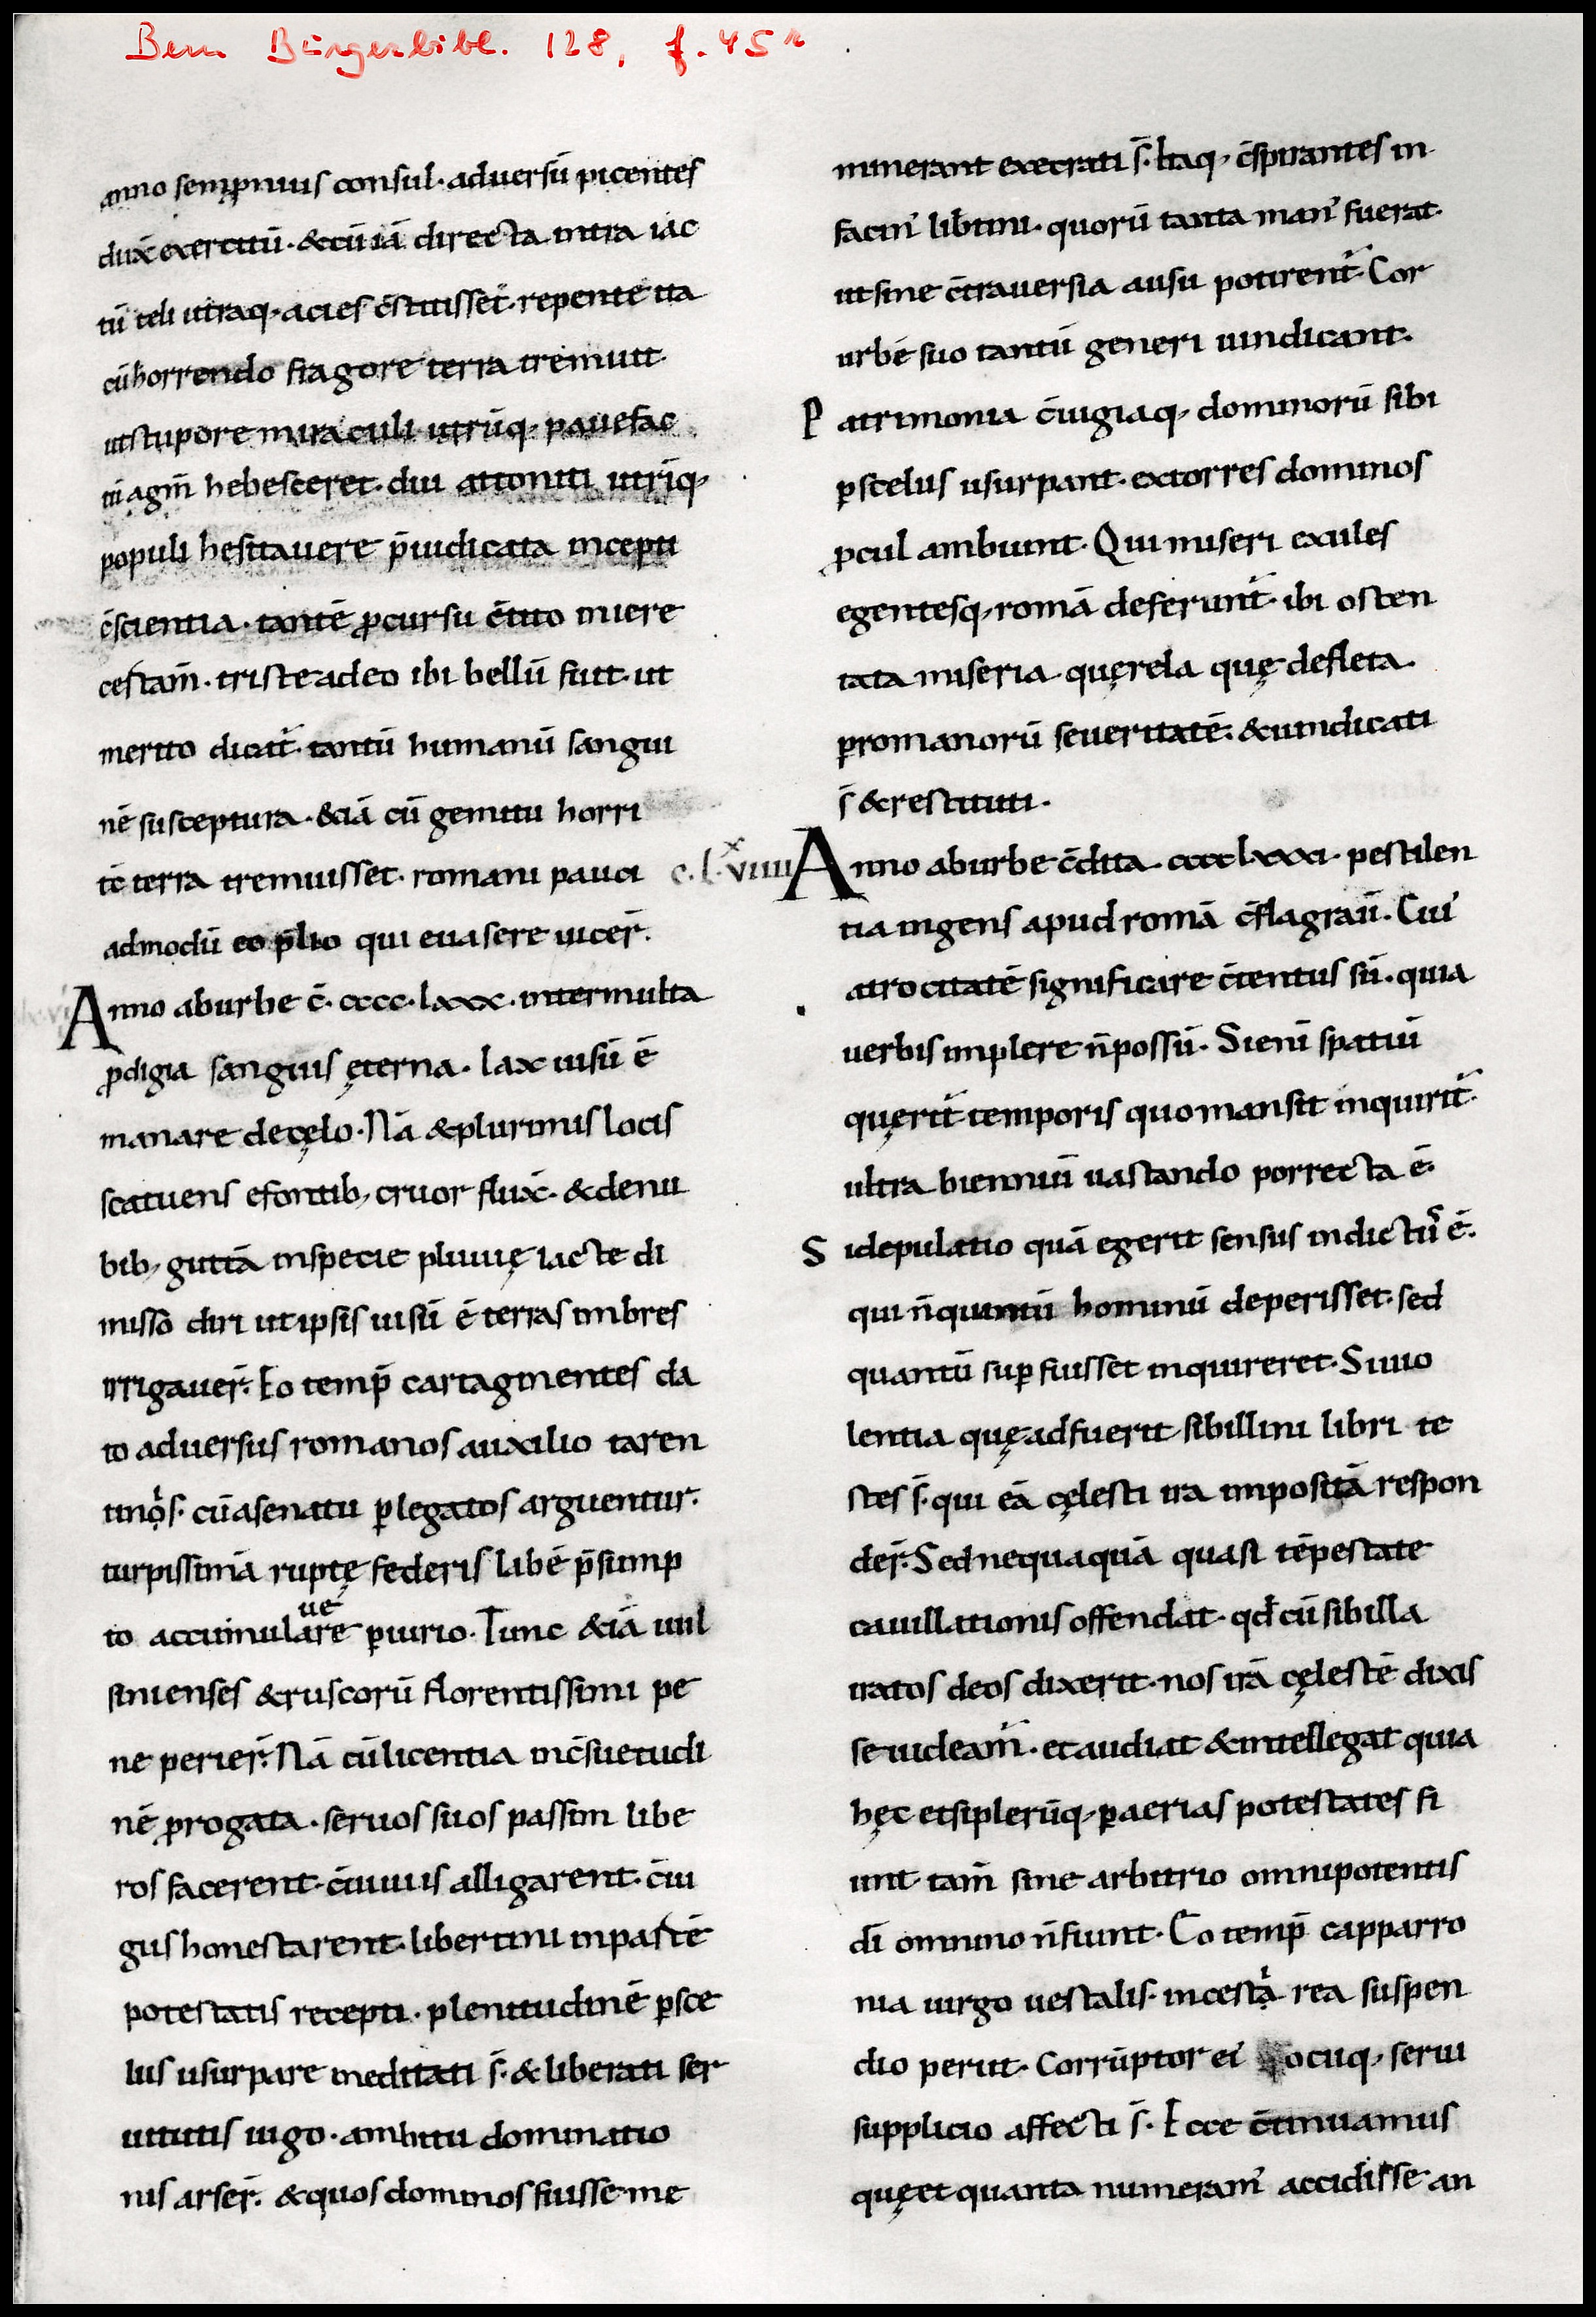 Bern Bürgerbibl. 128, f. 45r
anno semp̄nius consul· aduersū picentes
dux̄ exercitū· &cū iā directa intra iac
tū teli utraq· acies c̄stitisset· repente ita
cū horrendo fragore terra tremuit·
ut stupore miraculi utrūq· pauefac
tū agm̄ hebesceret· diu attoniti utriq·
populi hesitauere p̄iudicata incepti
c̄scientia· tantē ꝓcursu c̄cito iniere
certam̄· triste adeo ibi bellū fuit· ut
merito dicat᷑· tantū humanū sangui
nē susceptura· &iā cū gemitu horri
tē terra tremuisset· romani pauci
admodū eo p̄lio qui euasere uicer̄·
Anno aburbe c̄· cccc·lxxx· inter multa
ꝓdigia sanguis ęterna· lax uisū ē
manare decęlo· Nā &plurimis locis
scatuens efontib, cruor flux̄· &denu
bib, guttā inspecie pluuię lacte di
misso diri ut ipsis uisū ē terras imbres
irrigauer̄· Eo temp̄ cartaginentes da
to aduersus romanos auxilio taren
tinọ̇s· cū asenatu ꝑlegatos arguentur·
turpissimā ruptę federis labē p̄sump
ue
to accumulare ꝑiurio· Tunc &iā uul
sinienses &ruscorū florentissimi pe
ne perier̄· Nā cū licentia inc̄suetudi
nē ꝓrogata· seruos suos passim libe
ros facerent· c̄uiuiis alligarent· c̄iu
gus honestarent· libertini inpartē
potestatis recepti· plenitudinē ꝑsce
lus usurpare meditati s̄· &liberati ser
uitutis iugo· ambitu dominatio
nis arser̄· &quos dominos fuisse me
minerant execrati s̄· Itaq· c̄spirantes in
facin᾽ lib̄tini· quorū tanta man᾽ fuerat·
ut sine c̄trauersia ausu potirent᷑· Cor
urbē suo tantū generi uindicant·
Patrimonia c̄iugiaq· dominorū sibi
ꝑscelus usurpant· extorres dominos
ꝓcul ambiunt· Qui miseri exules
egentesq· romā deferunt᷑· ibi osten
tata miseria querela quę defleta·
ꝑromanorū seueritatē· &uindicati
s̄ &restituti·
c.l.xviiii Anno aburbe c̄dita· cccclxxxi· pestilen
tia ingens apud romā c̄flagrau᷑· Cui᾽
atrocitatē significare c̄tentus sū· quia
uerbis implere n̄possū· Sienī spatiū
quęrit᷑ temporis quo mansit inquirit᷑·
ultra bienniū uastando porrecta ē·
Sidepulatio quā egerit sensus indictur᷑ ē·
qui n̄quantū hominū deperisset· sed
quantū suꝑfuisset inquireret· Siuio
lentia quęadfuerit· sibillini libri te
stes s̄· qui eā cęlesti ira impositā respon
der̄· Sed nequaquā quasi tēpestate
cauillationis offendat· qđ cū sibilla
iratos deos dixerit· nos irā cęlestē dixis
se uideam᷑· et audiat &intellegat quia
hęc etsi plerūq· ꝑaerias potestates fi
unt tam̄ sine arbitrio omnipotentis
dī omnino n̄fiunt· Eo temp̄ capparro
nia uirgo uestalis· incestạ̇ rea suspen
dio periit· Corruptor ei᾽ ocuiq· serui
supplicio affecti s̄· Ecce c̄tinuamus
quęet quanta numeram᾽ accidisse an